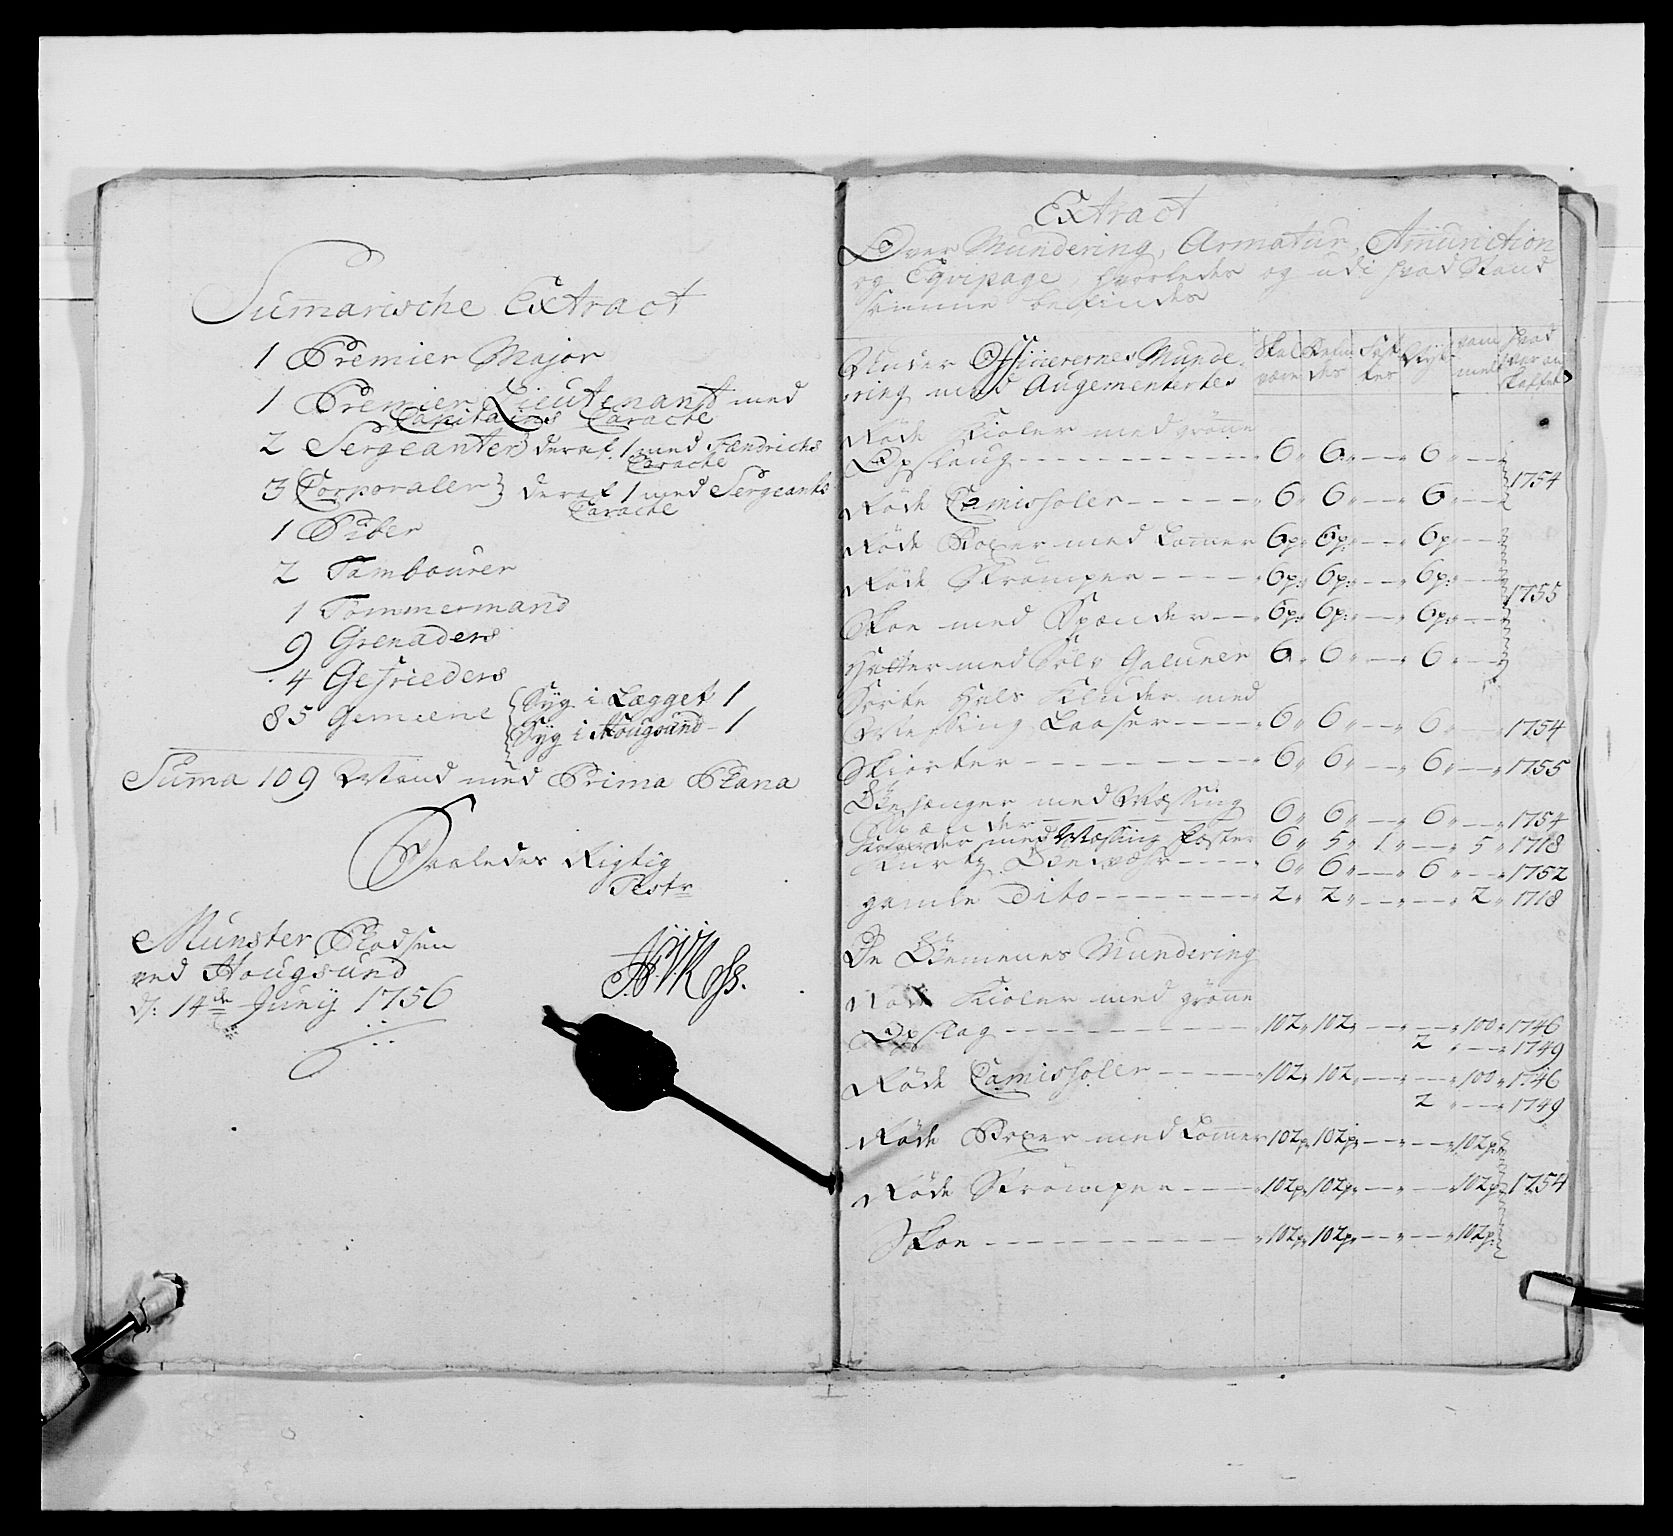 Sumarische Extract
1 Premier Major
1 Premier Lieutenant med
Capitains Carachte
2 Sergeanter deraf 1 med Fændrichs
Carachte
3 Corporaler deraf 1 med Sergeants
Carachte
1 Piber
2 Tambourer
1 Tømmermand
9 Grenaders
4 Gefrieders
85 Gemeene Syg i Lægget 1
Syg i Hougsund - 1
Suma 109 Mand med Prima Plana
Saaledes Rigtig
Test
Munster Pladsen
ved Hougsund
d: 14de Juny 1756
Extract
Over Mundering, Armatur, Amunition
og Eqvipage, hvorledes og udi hvad Stand
samme befindes
Under Officerernes Munde-
ring med Augementertes
Skal være
Befindes
Fattes
Nye
Gammel
Hvad Aar anskaffet
Røde Kioler med grønne
Opslaug 6 6 6
Røde Camisoler 6 6 6 1754
Røde Boxer med Lommer 6p 6p 6p
Røde Strømper 6p: 6p: 6p:
Skoe med Spænder 6p: 6p: 6p: 1755
Hatter med Sølv Galuner 6 6 6
Sorte Hals Kluder med
Messing Laaser 6 6 6 1754
Skiorter 6 6 6 1755
med Messing
Spænder 6 6 6 1754
med Messing Fæster 6 5 1 5 1718
6 6 6 1752
gamle Dito 2 2 2 1718
De Gemenes Mundering
Røde Kioler med grønne
Opslag 102 102 100 1746
2 1749
Røde Camisoler 102 102 100 1746
2 1749
Røde Boxer med Lommer 102p 102p 102p
Røde Strømper 102p 102p 102p 1754
Skoe 102p 102p 102p: